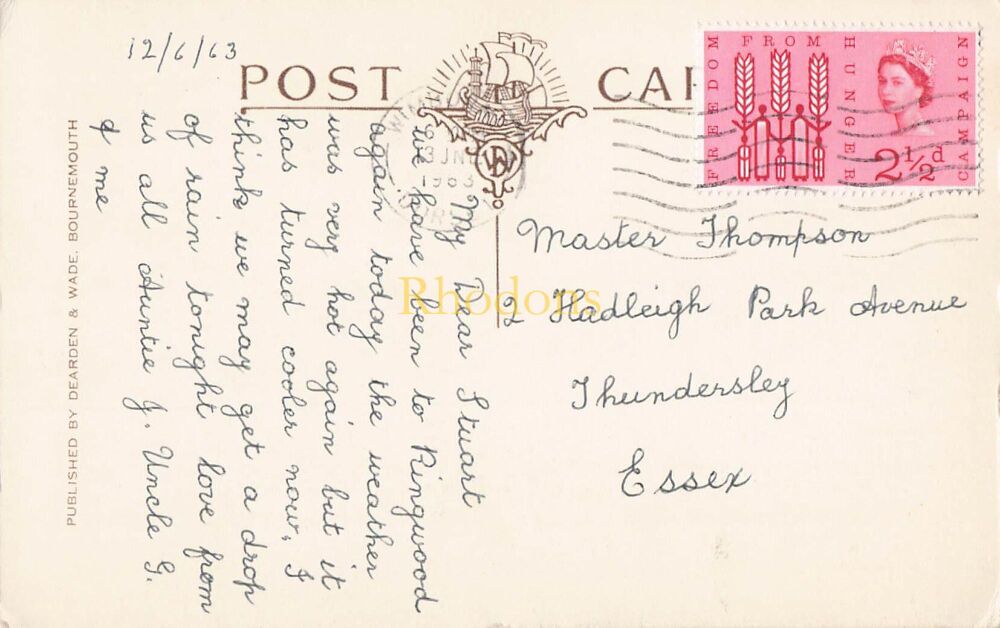 12/6/63
POST CAR
FREEDOM FROM HUNGER CAMPAIGN
2½d
1963
My Dear Stuart
we have been to Ringwood
again today the weather
was very hot again but it
has turned cooler now, I
think we may get a drop
of rain tonight love from
us all Auntie J. Uncle G.
& me
Master Thompson
2 Hadleigh Park Avenue
Thundersley
Essex
PUBLISHED BY DEARDEN & WADE, BOURNEMOUTH
Rhodons